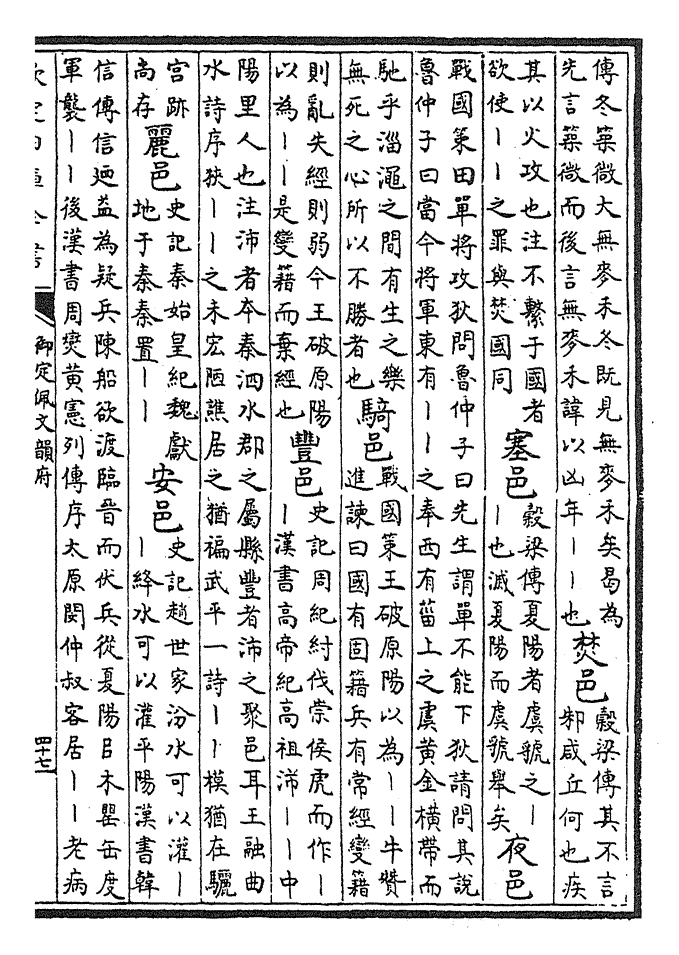 傳冬築微大無麥禾冬既見無麥禾矣曷為
先言築微而後言無麥禾諱以凶年丨丨也
焚邑
榖梁傳其不言
邾咸丘何也疾
其以火攻也注不繫于國者
欲使丨丨之罪與焚國同
塞邑
榖梁傳夏陽者虞虢之丨
丨也滅夏陽而虞虢舉矣
夜邑
戰國策田單將攻狄問魯仲子曰先生謂單不能下狄請問其說
魯仲子曰當今將軍東有丨丨之奉西有菑上之虞黄金橫帶而
馳乎淄澠之間有生之樂
無死之心所以不勝者也
騎邑
戰國策王破原陽以為丨丨牛贊
進諫曰國有固籍兵有常經變籍
則亂失經則弱今王破原陽
以為丨丨是變籍而棄經也
豐邑
史記周紀紂伐崇侯虎而作丨
丨漢書高帝紀高祖沛丨丨中
陽里人也注沛者本秦泗水郡之屬縣豐者沛之聚邑耳王融曲
水詩序狹丨丨之未宏陋譙居之猶褊武平一詩丨丨模猶在驪
宮跡
尚存
麗邑
史記秦始皇紀魏獻
地于秦秦置丨丨
安邑
史記趙世家汾水可以灌丨
丨絳水可以灌平陽漢書韓
信傳信廼益為疑兵陳船欲渡臨晉而伏兵從夏陽㠯木罌缶度
軍襲丨丨後漢書周燮黄憲列傳序太原閔仲叔客居丨丨老病
欽定四庫全書
御定佩文韻府
四十七